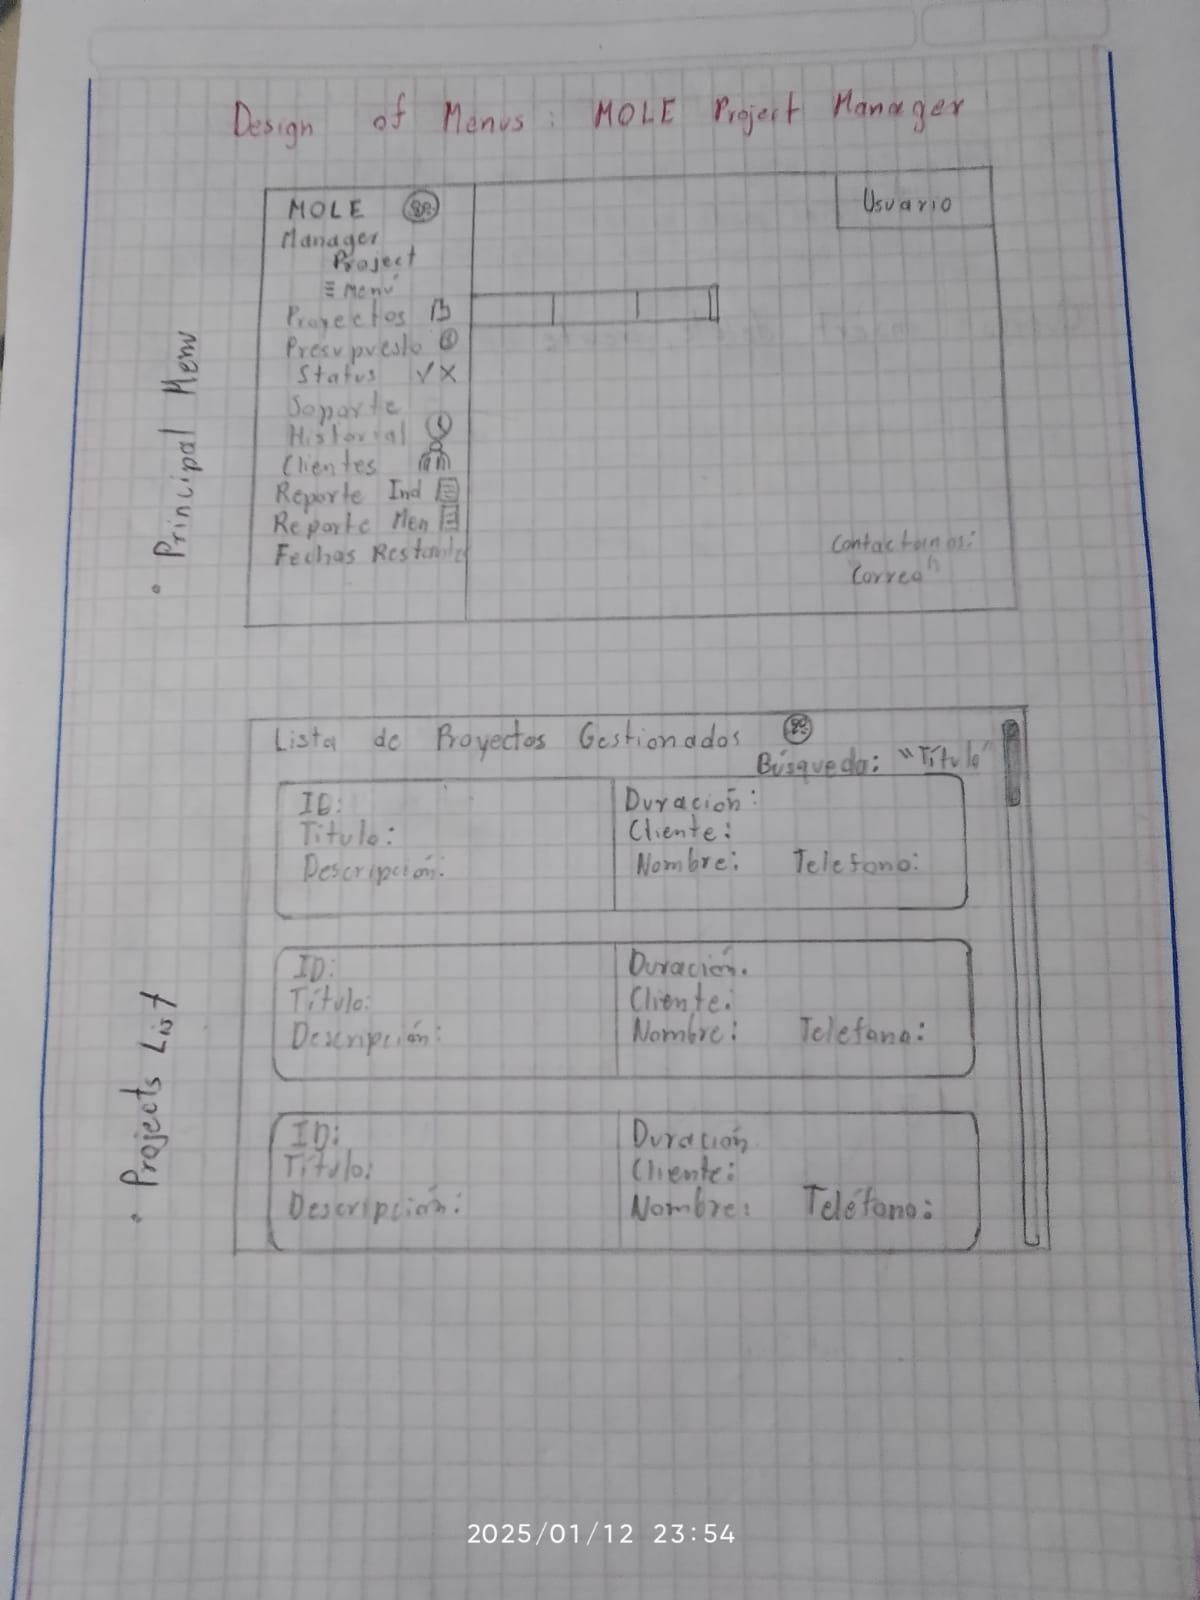 Design of Menus : MOLE Project Manager
• Principal Menu
MOLE
Manager
Project
≡ Menú
Proyectos
Presupuesto
Status ✓ X
Soporte
Historial
Clientes
Reporte Ind
Reporte Men
Fechas Restante
Usuario
Correo"
• Projects List
Lista de Proyectos Gestionados
Búsqueda: "Título"
ID:
Título:
Descripción:
Duración:
Cliente:
Nombre: Telefono:
ID:
Título:
Descripción:
Duración.
Cliente.
Nombre: Telefono:
ID:
Título:
Descripción:
Duración
Cliente:
Nombre: Teléfono:
2025/01/12 23:54